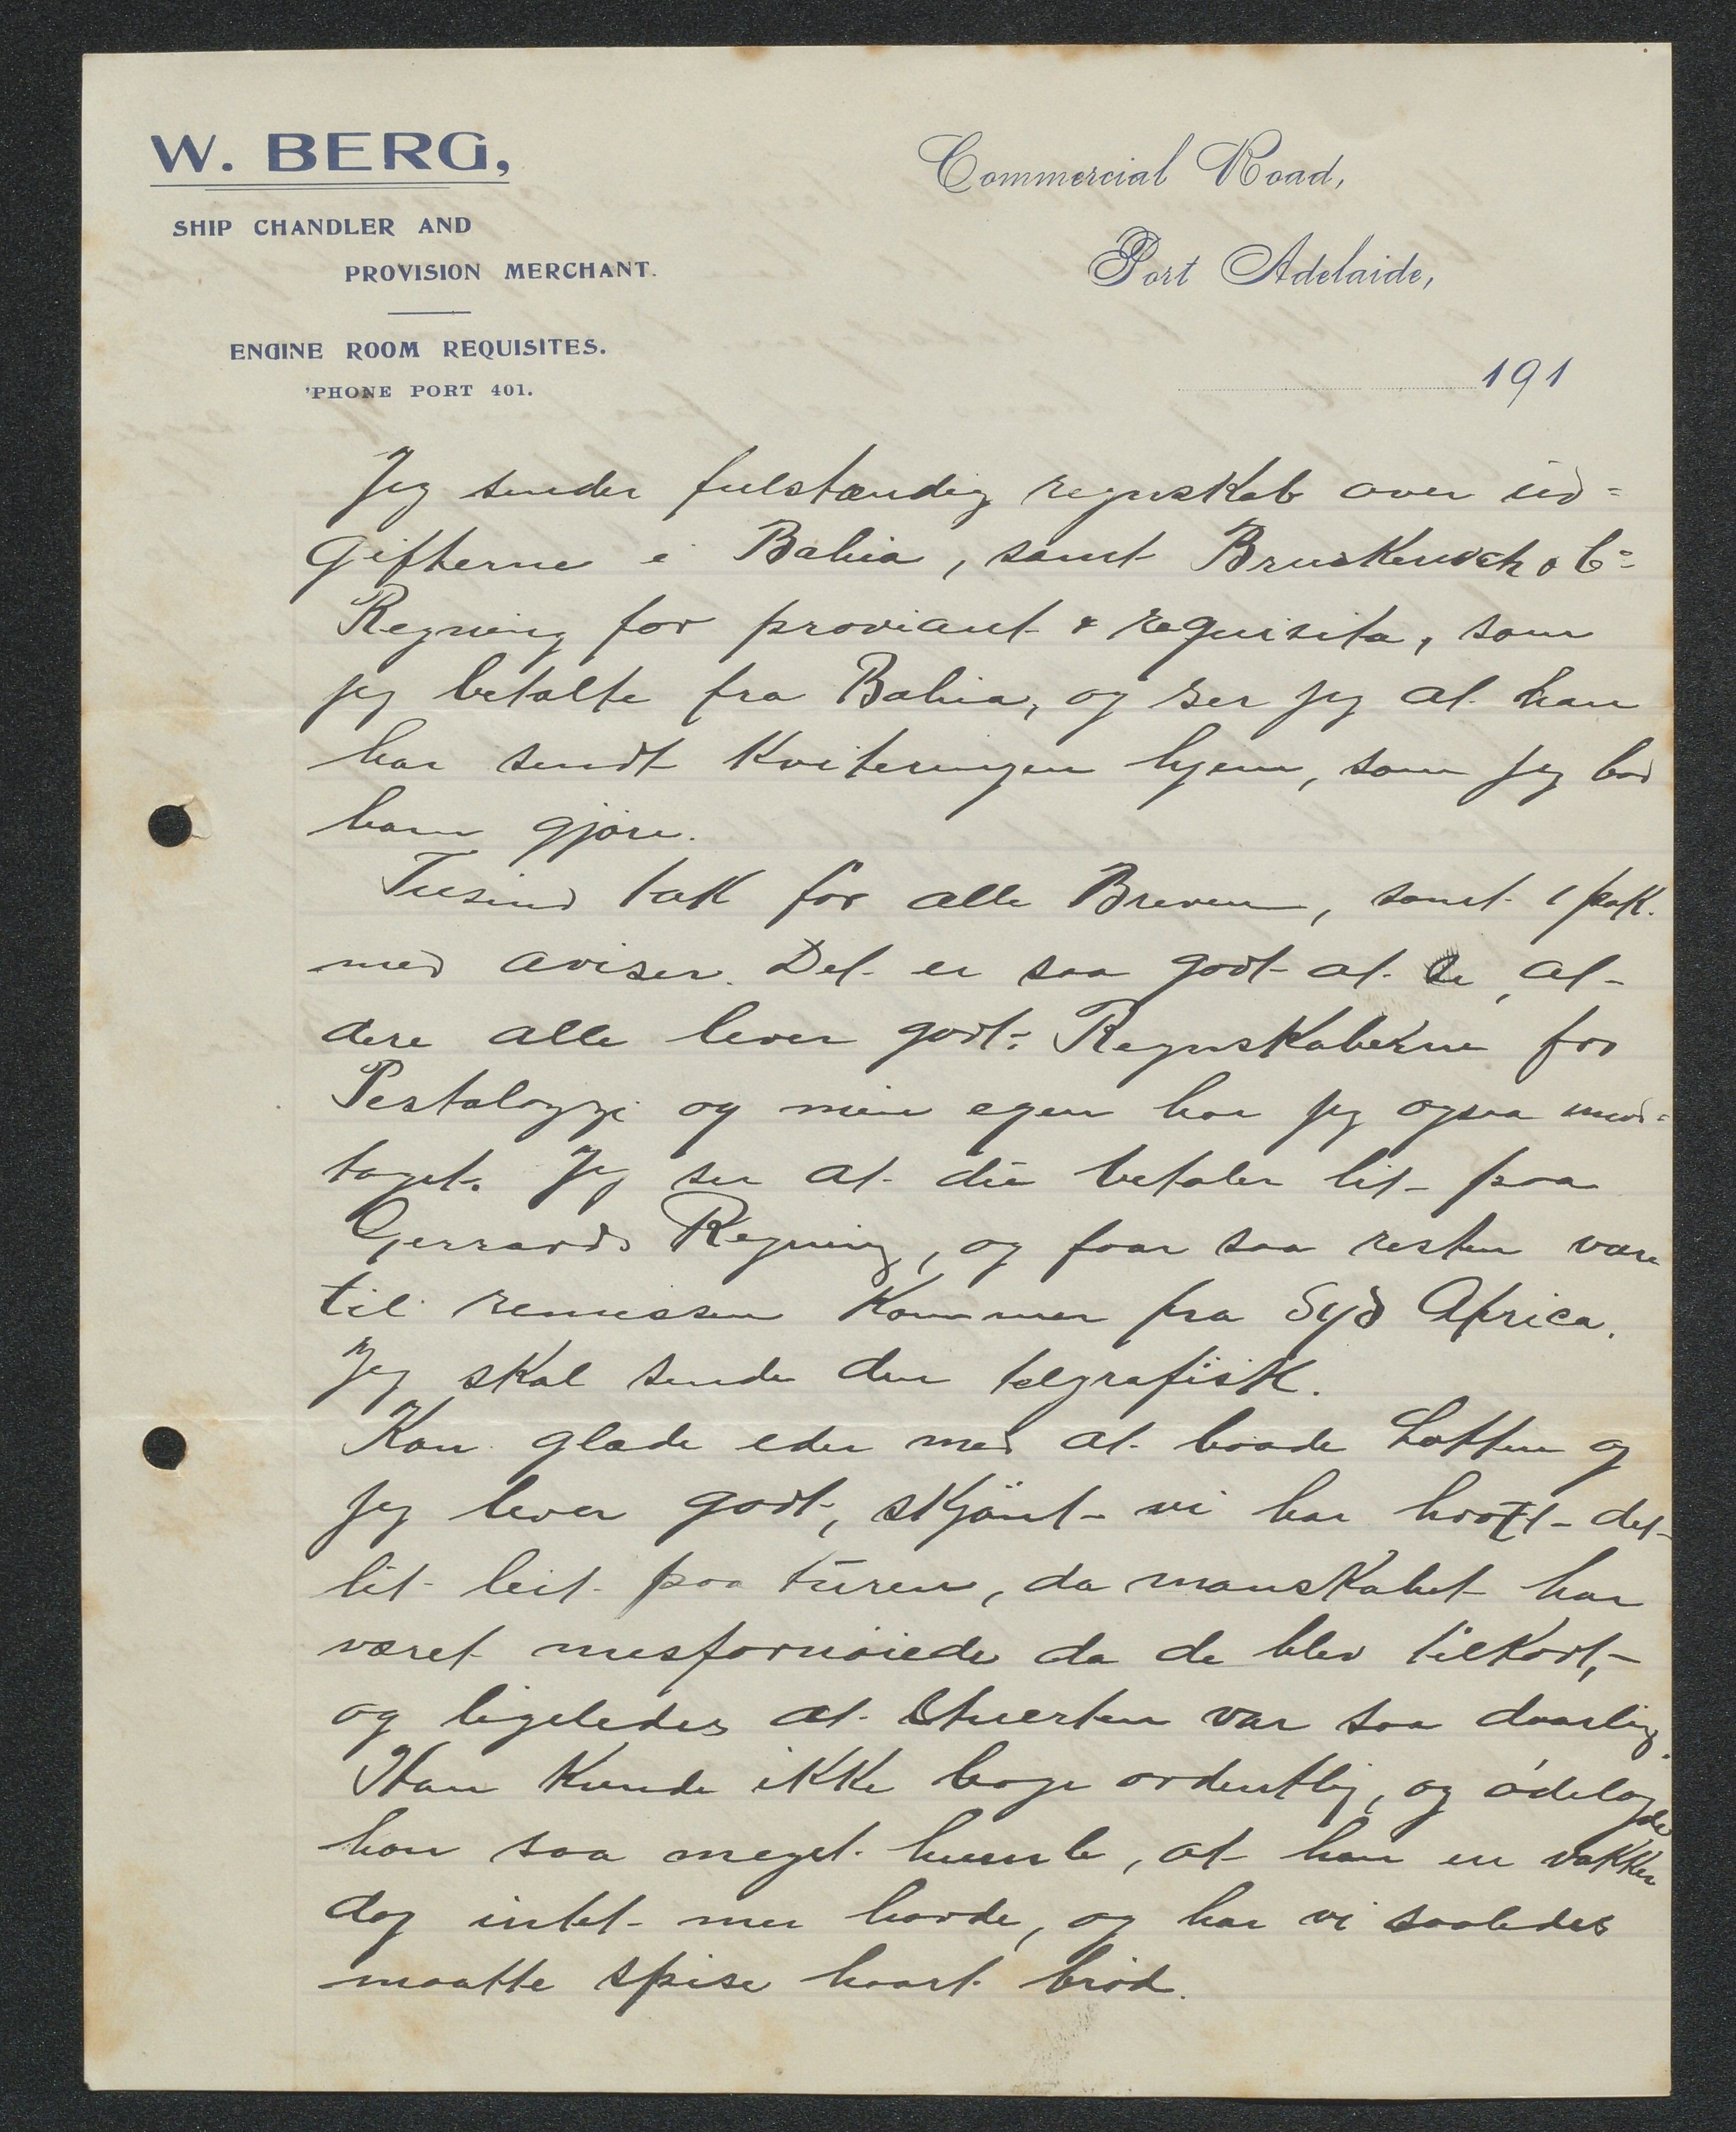 W. BERG,
SHIP CHANDLER AND
PROVISION MERCHANT.
ENGINE ROOM REQUISITES.
'PHONE PORT 401.
Commercial Road,
Port Adelaide,
191
Jeg sender fulstændig regnskab over ud=
gifterne i Bahia, samt & Co
Regning for proviant & requisita, som
jeg betalte fra Bahia, og ser jeg at han
har sendt Kviteringen hjem, som jeg bad
ham gjöre.
Tusind tak for alle Breven, samt 1 pak.
med aviser. Det er saa godt at se, at
dere alle lever godt. Regnskaberne for
Pestalozzi og min egen har jeg ogsaa mod=
taget. Jeg ser at du betaler lit paa
Gerrards Regning, og faar saa resten være
til remissen Kommer fra Syd Africa.
Jeg skal sende den telgrafisk.
Kan glæde eder med at baade Lotten og
jeg lever godt, skjönt vi har havt det
lit leit paa turen, da manskabet har
været misfornöiede da de blev tilkort,
og ligeledes at Stuerten var saa daarlig.
Han Kunde ikke bage ordentlig, og ödelagde
han saa meget humle, at han en vakker
dag intet mer havde, og har vi saaledes
maatte spise haart bröd.